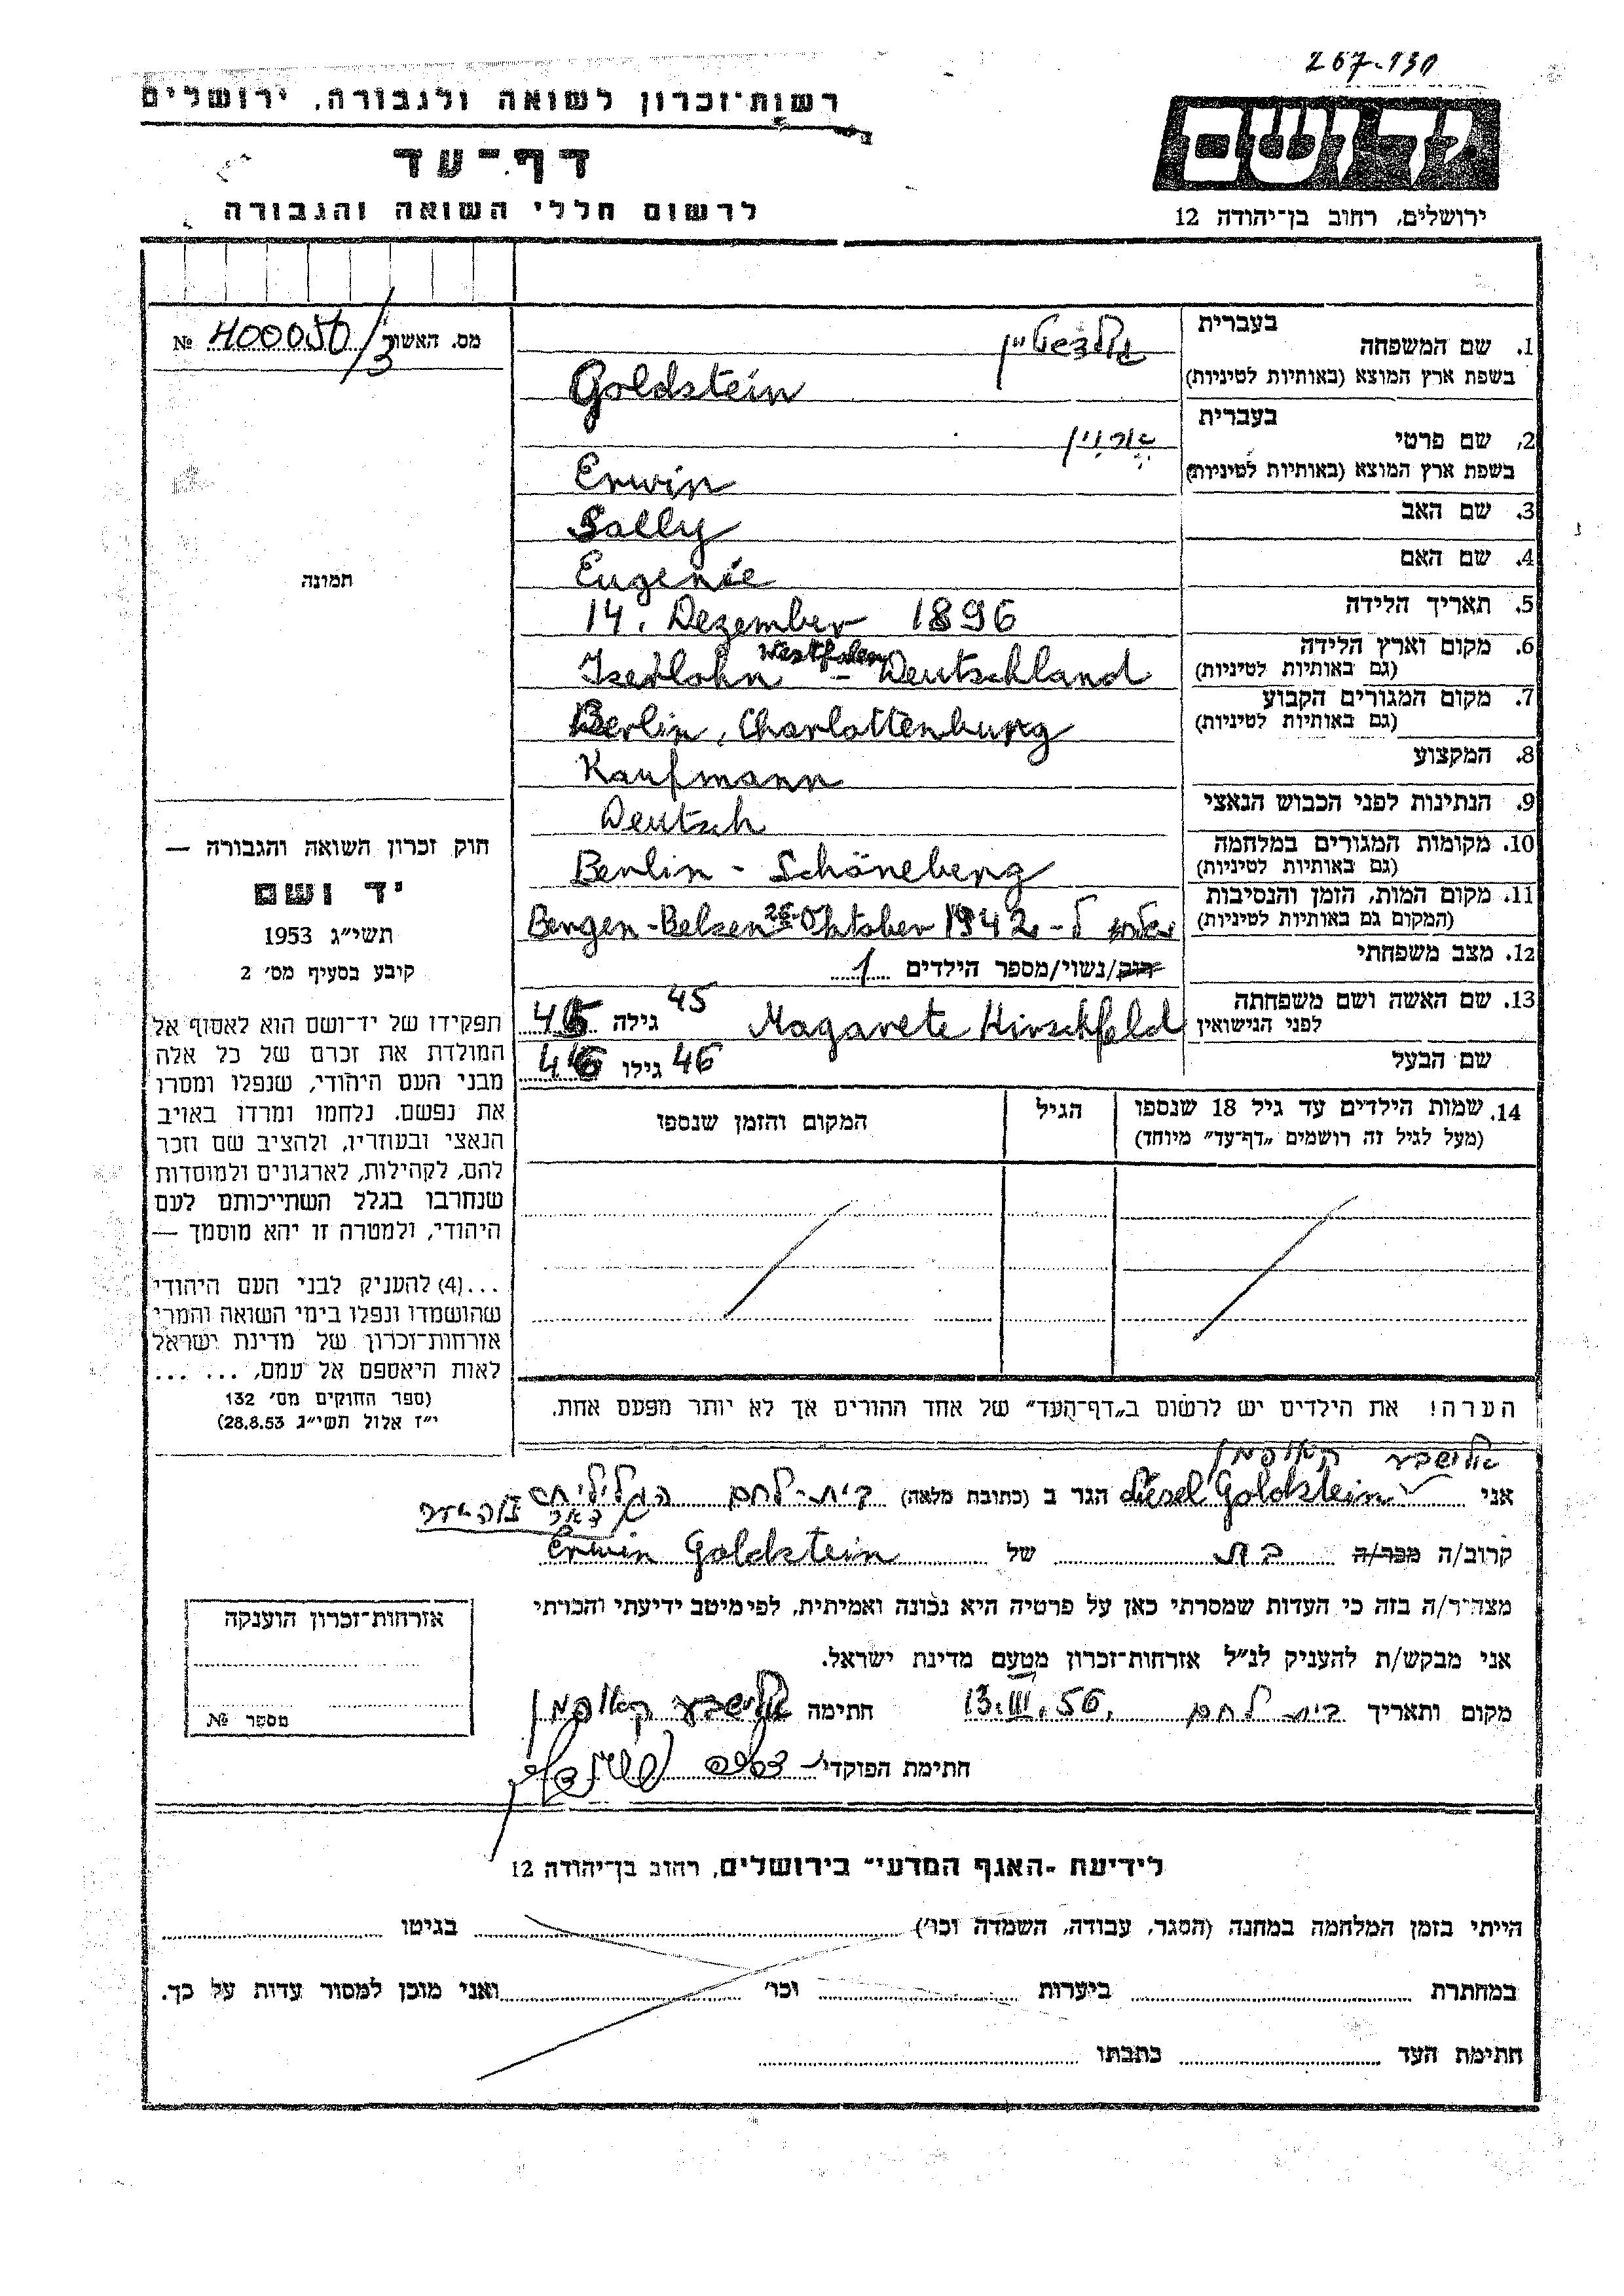 267-130
רשות־זכרון לשואה ולגבורה, ירושלים
דף־עד
לרשום חללי השואה והגבורה
יד ושם
ירושלים, רחוב בן־יהודה 12
מס. האשור 400050/3 №
תמונה
חוק זכרון השואה והגבורה —
יד ושם
תשי״ג 1953
קובע בסעיף מס׳ 2
תפקידו של יד־ושם הוא לאסוף אל
המולדת את זכרם של כל אלה
מבני העם היהודי, שנפלו ומסרו
את נפשם, נלחמו ומרדו באויב
הנאצי ובעוזריו, ולהציב שם וזכר
להם, לקהילות, לארגונים ולמוסדות
שנחרבו בגלל השתייכותם לעם
היהודי, ולמטרה זו יהא מוסמך —
...(4) להעניק לבני העם היהודי
שהושמדו ונפלו בימי השואה והמרי
אזרחות־זכרון של מדינת ישראל
לאות היאספם אל עמם. ... ...
(ספר החוקים מס׳ 132
י״ז אלול תשי״ג 28.8.53)
1. שם המשפחה בעברית גולדשטיין
בשפת ארץ המוצא (באותיות לטיניות) Goldstein
2. שם פרטי בעברית ארווין
בשפת ארץ המוצא (באותיות לטיניות) Erwin
3. שם האב Sally
4. שם האם Eugenie
5. תאריך הלידה 14. Dezember 1896
6. מקום וארץ הלידה (גם באותיות לטיניות) Iserlohn Westfalen - Deutschland
7. מקום המגורים הקבוע (גם באותיות לטיניות) Berlin, Charlottenburg
8. המקצוע Kaufmann
9. הנתינות לפני הכבוש הנאצי Deutsch
10. מקומות המגורים במלחמה (גם באותיות לטיניות) Berlin - Schöneberg
11. מקום המות, הזמן והנסיבות (המקום גם באותיות לטיניות) Bergen-Belsen Oktober 1942
12. מצב משפחתי רווק/נשוי/מספר הילדים 1
13. שם האשה ושם משפחתה לפני הנישואין Magarete Hirschfeld גילה 45
שם הבעל גילו 46
14. שמות הילדים עד גיל 18 שנספו הגיל המקום והזמן שנספו
(מעל לגיל זה רושמים „דף־עד״ מיוחד)
הערה! את הילדים יש לרשום ב„דף־העד״ של אחד ההורים אך לא יותר מפעם אחת.
אלישבע קאופמן
אני Liesel Goldstein הגר ב (כתובת מלאה) בית-לחם הגלילית
קרוב/ה מכר/ה בת של Erwin Goldstein
מצהיר/ה בזה כי העדות שמסרתי כאן על פרטיה היא נכונה ואמיתית, לפי מיטב ידיעתי והכרתי
אני מבקש/ת להעניק לנ״ל אזרחות־זכרון מטעם מדינת ישראל.
מקום ותאריך בית לחם 13.III.56. חתימה אלישבע קאופמן
חתימת הפוקד
אזרחות־זכרון הוענקה
מספר №
לידיעת „האגף המדעי״ בירושלים, רחוב בן־יהודה 12
הייתי בזמן המלחמה במחנה (הסגר, עבודה, השמדה וכו׳) בגיטו
במחתרת ביערות וכו׳ ואני מוכן למסור עדות על כך.
חתימת העד כתבתו